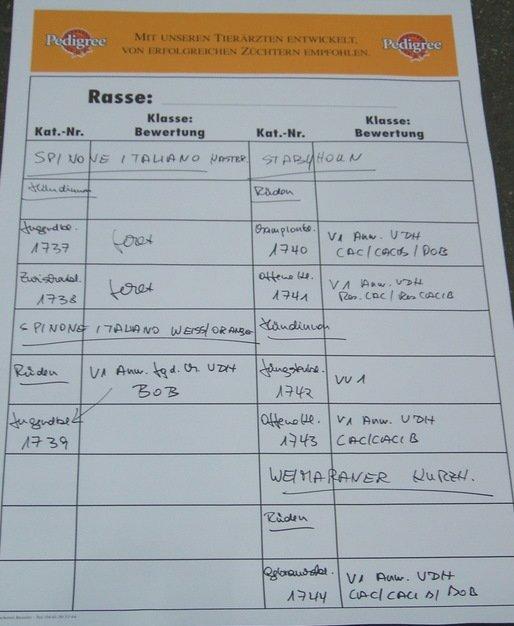 Pedigree
MIT UNSEREN TIERÄRZTEN ENTWICKELT,
VON ERFOLGREICHEN ZÜCHTERN EMPFOHLEN.
Pedigree
Rasse:
Kat.-Nr.
Klasse:
Bewertung
Kat.-Nr.
Klasse:
Bewertung
SPINONE ITALIANO
Hündinnen
Jugendkl.
1737
Zwischenkl.
1738
SPINONE ITALIANO WEISS/ORANGE
Rüden
V1 Anw. Jgd. Ch. VDH
BOB
Jugendkl.
1739
STABYHOUN
Rüden
Championkl.
1740
V1 Anw. VDH
CAC/CACIB/BOB
Offene Kl.
1741
V1 Anw. VDH
Res. CAC/Res CACIB
Hündinnen
1742
VV1
Offene Kl.
1743
V1 Anw. VDH
CAC/CACIB
WEIMARANER KURZH.
Rüden
Gebrauchskl.
1744
V1 Anw. VDH
CAC/CACIB/BOB